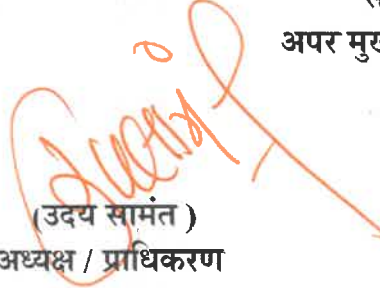 अपर मुख
(उदय सामंत )
अध्यक्ष / प्राधिकरण